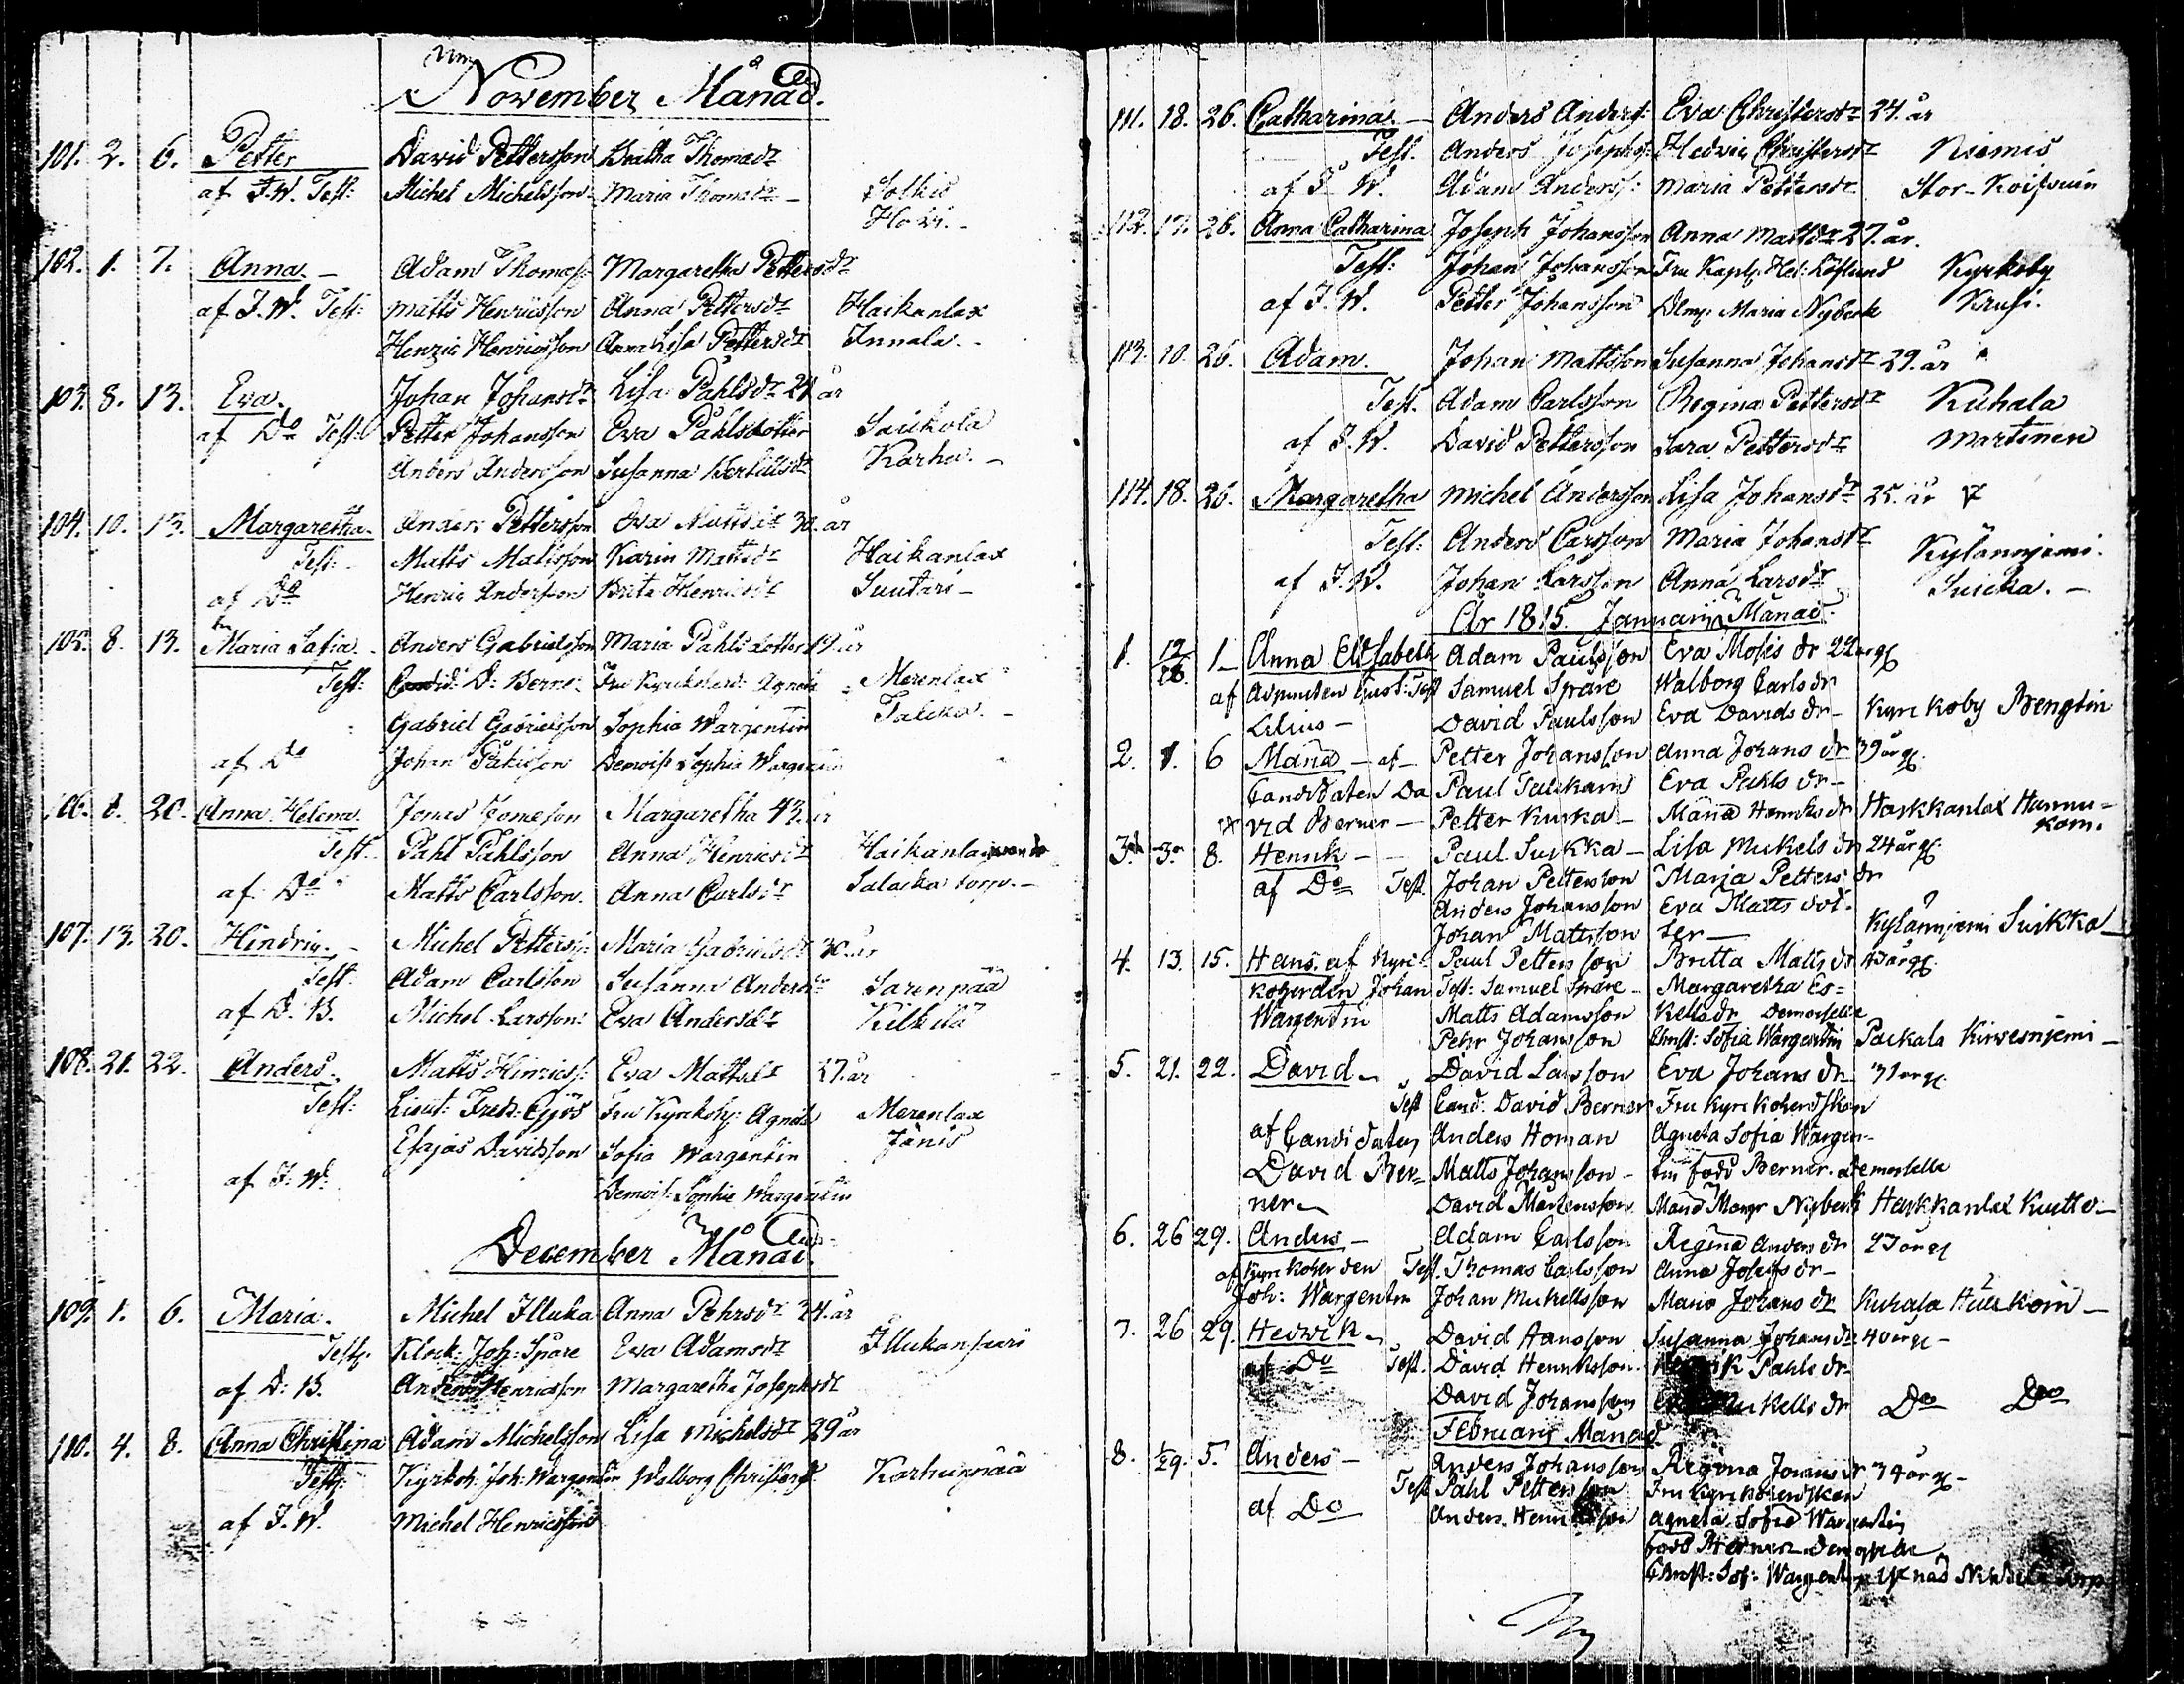 November Månad.
101. 2. 6. Petter David Pettersson Beatha Thomædr
af J.W. Test: Michel Michelsson Maria Thomædr Solkis
Hovi.
102. 1. 7. Anna. Adam Thomæss: Margaretha Pettersdr
af J.W. Test: Matts Henricsson Anna Pettersdr Haikanlax
Henric Henricsson Anna Lisa Pettersdr Innala.
103. 8. 13. Eva. Johan Johansdr Lisa Påhlsdr 24 år
af Do Test: Petter Johansson Eva Påhlsdotter Saukola
Anders Andersson Susanna Bertilsdr Karhu.
104. 10. 13. Margaretha. Anders Pettersson Eva Mattsdr 30. år
Test: Matts Mattsson Karin Mattsdr Haikanlax
af Do Henric Andersson Brita Henricsdr Suutari
105. 8. 13. Maria Safia. Anders Gabrielsson Maria Påhlsdotter 19. år
Test: Candid: D: Berner Fru Kyrkoherd: Agneta Merenlax
Gabriel Gabrielsson Sophia Wargentin Talcka.
af Do Johan Demois: Sophia Wargentin
106. 8. 20. Anna Helena. Jonas Margaretha 43. år
Test: Påhl Påhlsson Anna Henricsdr Haikanlax
af Do Matts Carlsson. Anna Carlsdr torp.
107. 13. 20. Hindric. Michel Petterss: Maria Gabrielsdr 30. år
Test: Adam Carlsson Susanna Andersdr Sarenpää
af D. B. Michel Larsson: Eva Andersdr Kilkilä
108. 21. 22. Anders. Matts Hinricss: Eva Mattsdr 27. år
Test: Lieut: Fredr: Fru Kyrkoh: Agneta Merenlax
Esajas Davidsson Sofia Wargentin Jänis
af J. W. Demois: Sophie Wargentin
December Månad.
109. 1. 6. Maria. Michel Illuka Anna Pehrsdr 24. år
Test: Klock: Joh: Spåre Eva Adamsdr Illukansaari
af D: B. Anders Henricsson Margaretha Josephsdr
110. 4. 8. Anna Christina Adam Michelsson Lisa Michelsdr 29 år
Test: Kyrkoh: Joh: Wargentin Walborg Christersdr Karhunpää
af J. W. Michel Henricsson
111. 18. 26. Catharina. Anders Anderss: Eva Christersdr 24. år
Test. Anders Josephss: Hedvig Christersdr Niemis
af J. W. Adam Anderss: Maria Pettersdr Stor-
112. 17. 26. Anna Catharina Joseph Johansson Anna Mattsdr 27. år.
Test: Johan Johansson Fru Kapl. Hel: Löflund Kyrkoby
af J. W. Petter Johansson Dlmp. Maria Nyberk Krusi.
113. 10. 26. Adam. Johan Mattsson Susanna Johansdr 29. år
Test. Adam Carlsson Regina Pettersdr Kuhala
af J. W. David Pettersson Sara Pettersdr Martinen
114. 18. 26. Margaretha Michel Andersson Lisa Johansdr 25. år
Test: Anders Larsson Maria Johansdr Kylänniemi.
af J. W. Johan Larsson Anna Larsdr Suicka.
År 1815. Januarij Månad.
1. 12/26. 1 Anna Elisabeth Adam Paulsson Eva Moses dr 22 år
af Adjuncten Gust: Test Samuel Spåre Walborg Carls dr
Lilius David Paulsson Eva Davids dr Kyrkoby Bengtin
2. 1. 6 Maria af Petter Johansson Anna Johans dr 39 år
Candidaten Da Paul Eva Påhls dr
vid Berner Petter Kurka Maria Henriks dr Haikkanlax
3. 3. 8. Henrik Paul Suikka Lisa Mickels dr 24 år
af Do Test. Johan Pettersson Maria Petters dr
Anders Johansson Eva Matts dot-
Johan Mattsson ter Kylänniemi Suikka
4. 13. 15. Hans. af Kyrc- Paul Pettersson Britta Matts dr 43 år
koherden Johan Test: Samuel Spåre Margaretha Es=
Wargentin Matts Adamsson kells dr Demoiselle
Pehr Johansson Christ: Sofia Wargentin Packala Kirvesniemi
5. 21. 22. David David Larsson Eva Johans dr 31 år
Test Cand: David Berner Fru Kyrckoherdskan
af Candidaten Anders Homan Agneta Sofia Wargen-
David Ber- Matts Johansson tin född Berner. demoiselle
ner David Mårtensson Maria Margr Nyberk Haikkanlax Kutto
6. 26 29. Anders Adam Carlsson Regina Anders dr 27 år
af Kyrkoherden Test. Thomas Carlsson Anna Josefs dr
Joh: Wargentin Johan Mickelsson Maria Johans dr Kuhala
7. 26 29. Hedvik David Hansson Susanna Johans dr 40 år
af Do Test. David Henriksson Påhls dr
David Johansson Mickells dr Do Do
Februarij Månad
8. 1/29. 5. Anders Anders Johansson Regina Jonas dr 34 år
Test Påhl Pettersson Fru Kyrkoherdskan
af Do Anders. Henriksson Agneta Sofia Wargentin
född Berner demoiselle
Christ: Sof: Wargentin